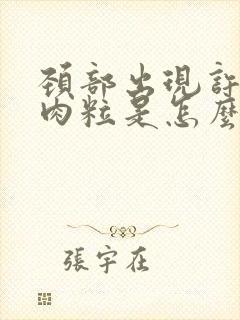 頸部出現許
肉粒是怎麼
張宇在